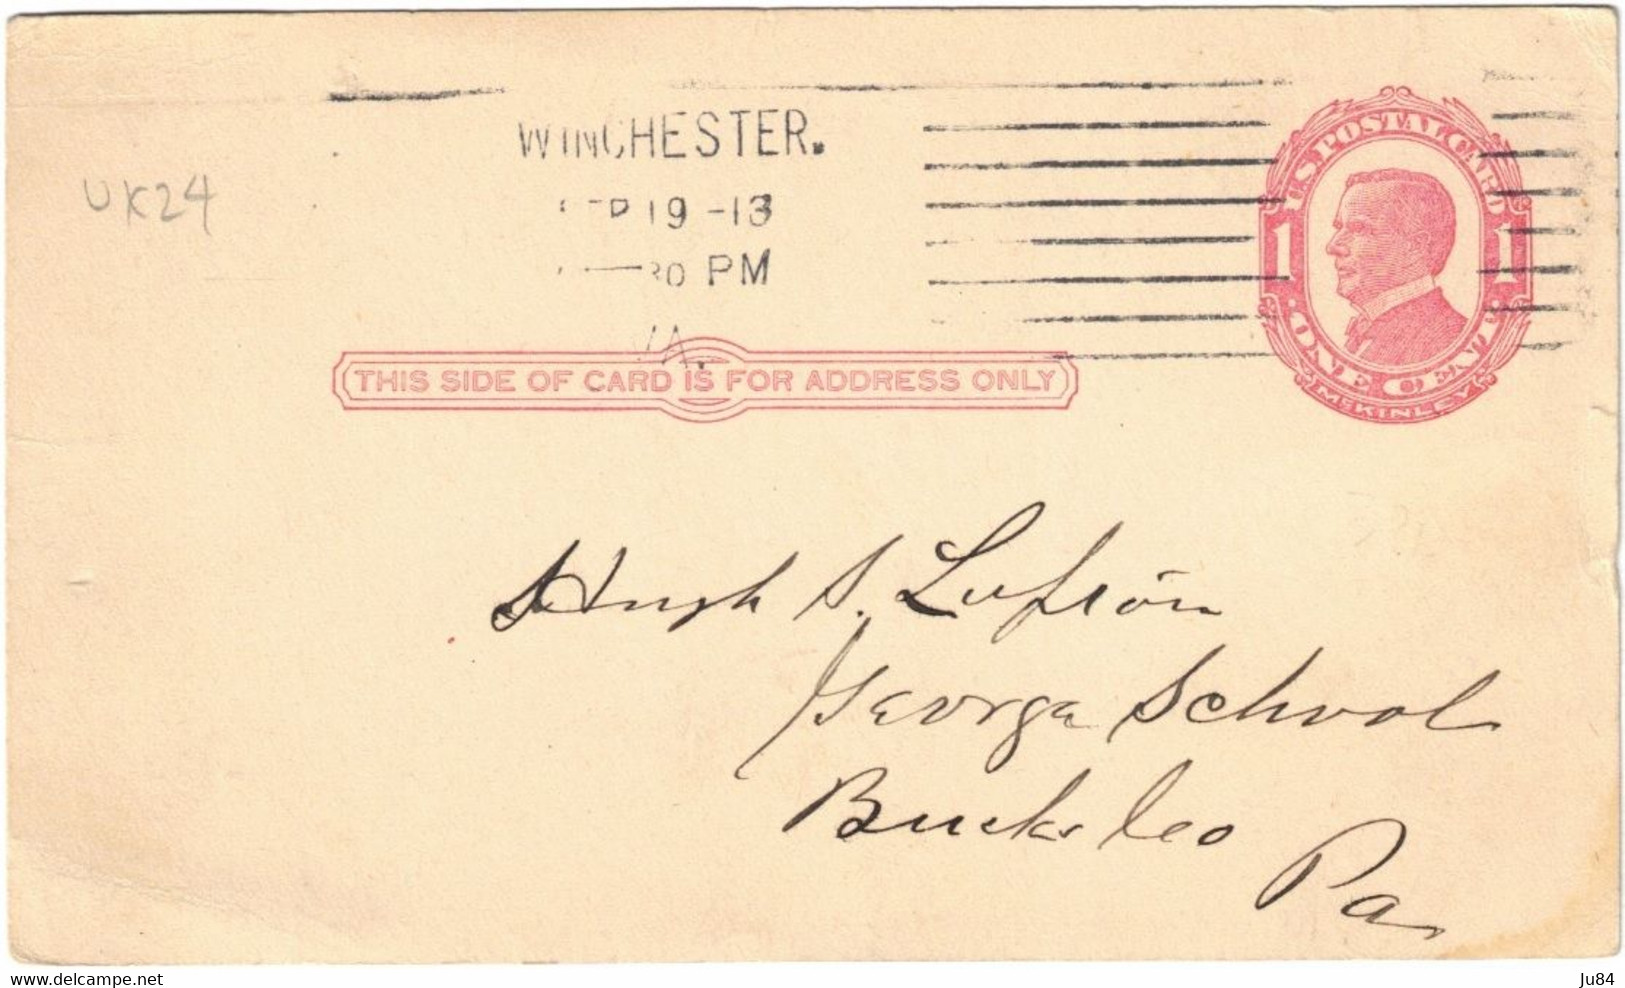 WINCHESTER.
SEP 19 -13
30 PM
VA.
UX24
U.S. POSTAL CARD
1 1
ONE CENT
McKINLEY
THIS SIDE OF CARD IS FOR ADDRESS ONLY
Hugh S. Lupton
George School
Bucks Co
Pa
delcampe.net
Ju84